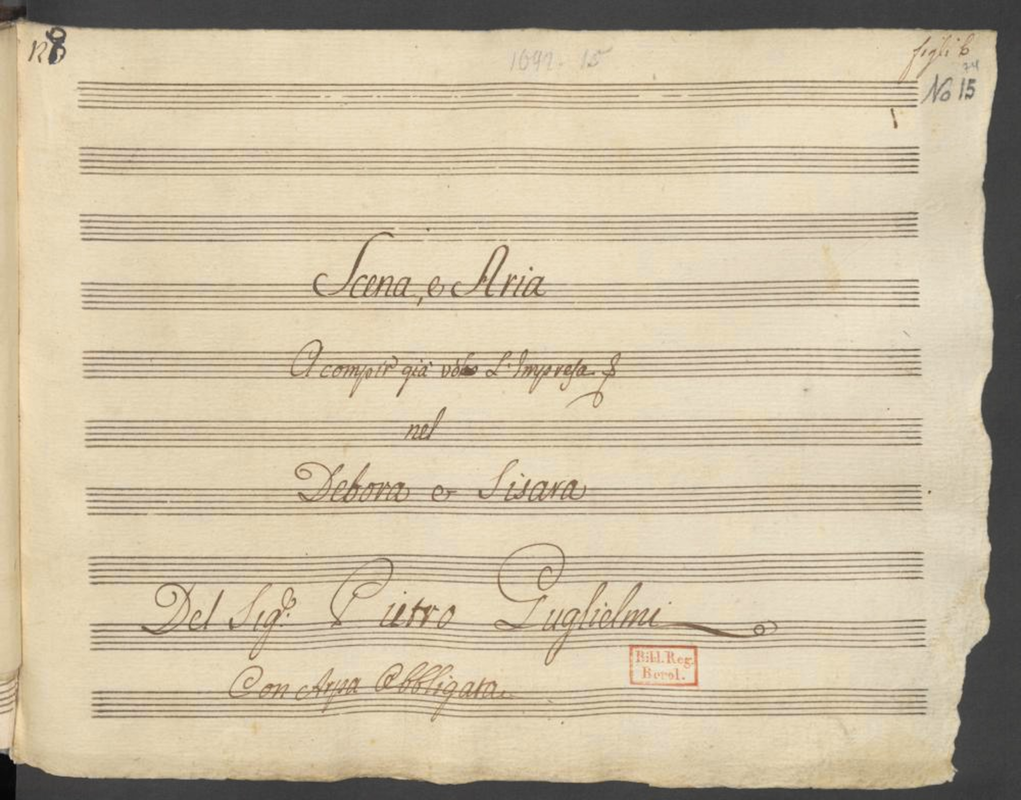 1692. 15
figli 6
74
No 15
Scena, e Aria
A compir già volo L'Impresa
nel
Debora e Sisara
Del Sigr. Pietro Guglielmi
Bibl. Reg.
Berol.
Con Arpa Obbligata